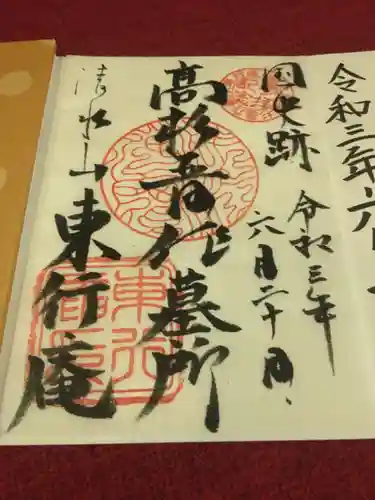 令和三年六月
国史跡
令和三年
六月二十日
高杉晋作墓所
清水山東行庵